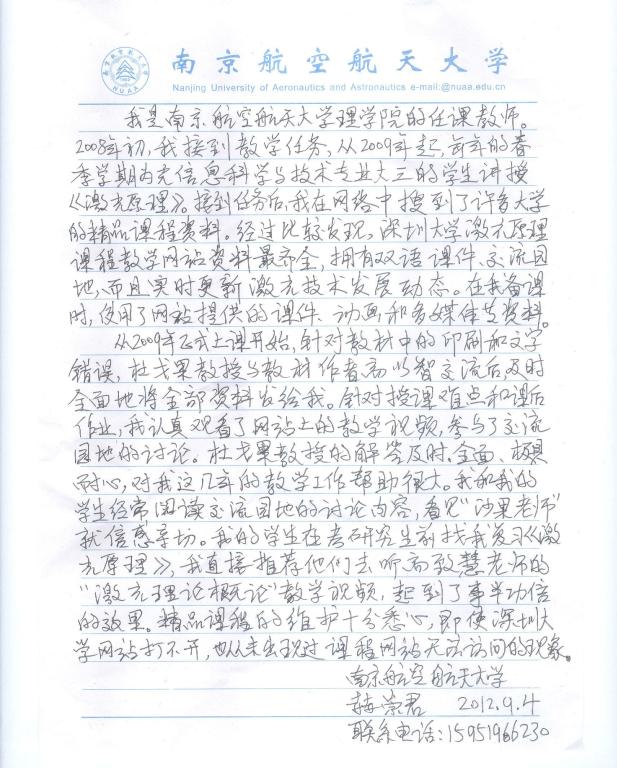 南京航空航天大学
Nanjing University of Aeronautics and Astronautics e-mail:@nuaa.edu.cn
NUAA
我是南京航空航天大学理学院的任课教师。
2008年初，我接到教学任务，从2009年起，每年的春
季学期为光信息科学与技术专业大三的学生讲授
《激光原理》。接到任务后，我在网络中搜到了许多大学
的精品课程资料。经过比较发现，深圳大学激光原理
课程教学网站资料最齐全，拥有双语课件、交流园
地，而且实时更新激光技术发展动态。在我备课
时，使用了网站提供的课件、动画和多媒体等资料。
从2009年正式上课开始，针对教材中的印刷和文字
错误，杜戈果教授与教材作者高以智交流后及时
全面地将全部资料发给我。针对授课难点和课后
作业，我认真观看了网站上的教学视频，参与了交流
园地的讨论。杜戈果教授的解答及时、全面、极具
耐心，对我这几年的教学工作帮助很大。我和我的
学生经常阅读交流园地的讨论内容，看见“沙果老师”
就信感亲切。我的学生在考研究生前找我复习《激
光原理》，我直接推荐他们去听高政慧老师的
“激光理论概论”教学视频，起到了事半功倍
的效果。精品课程的维护十分悉心，即使深圳大
学网站打不开，也从未出现过课程网站无法访问的现象。
南京航空航天大学
崇君 2012.9.4
联系电话：15951966230